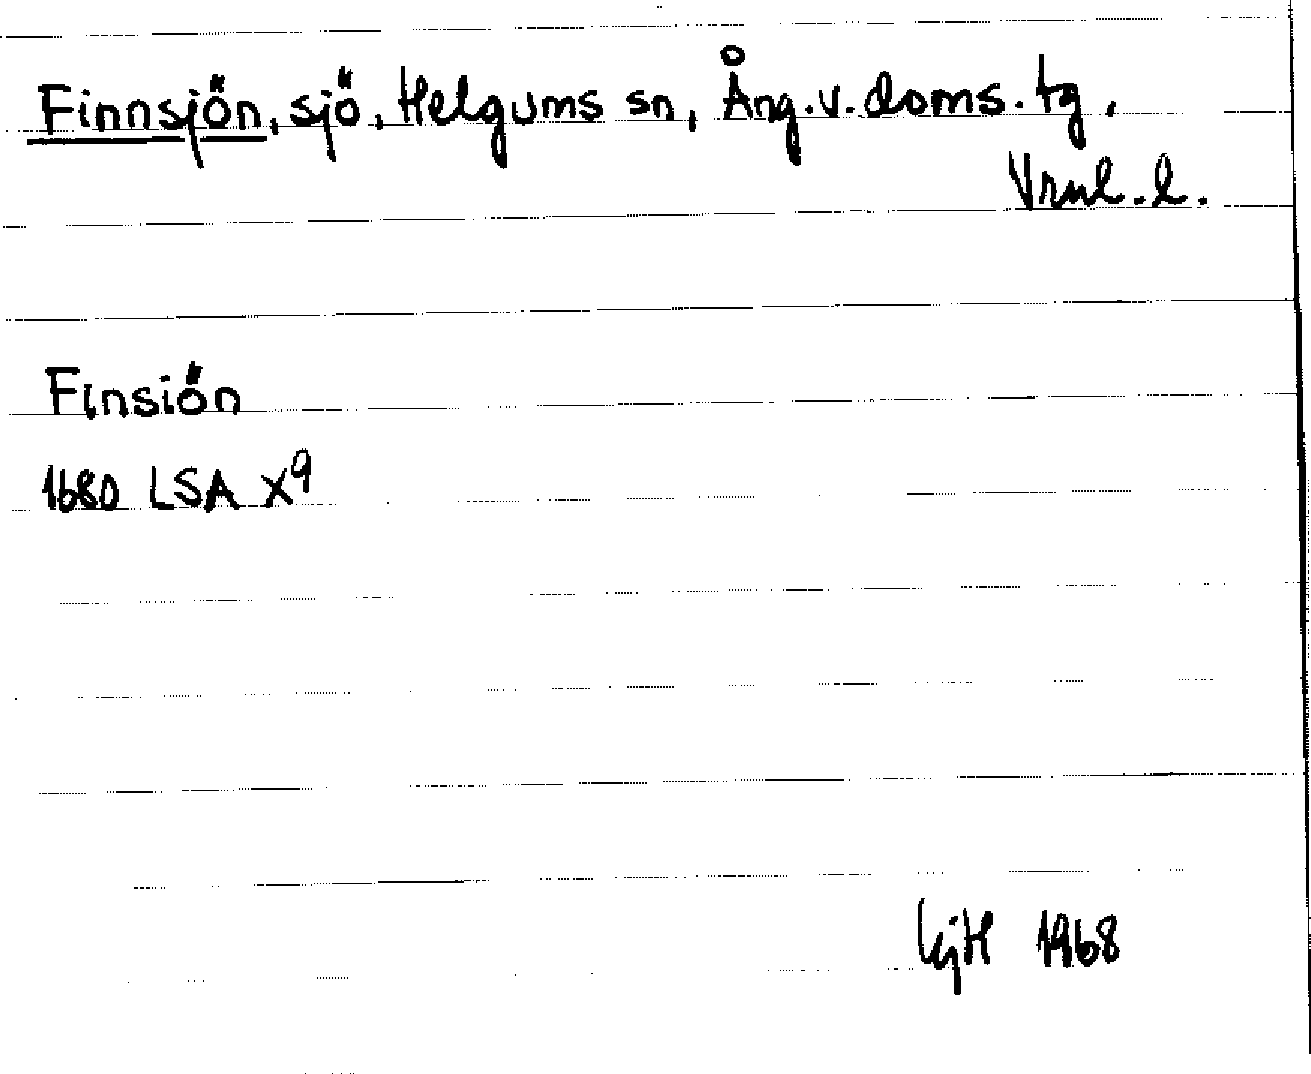 Finnsjön, sjö, Helgums sn, Ång.v.doms.tg,
Vrnl.l.
Finsiön
1680 LSA X9
1968